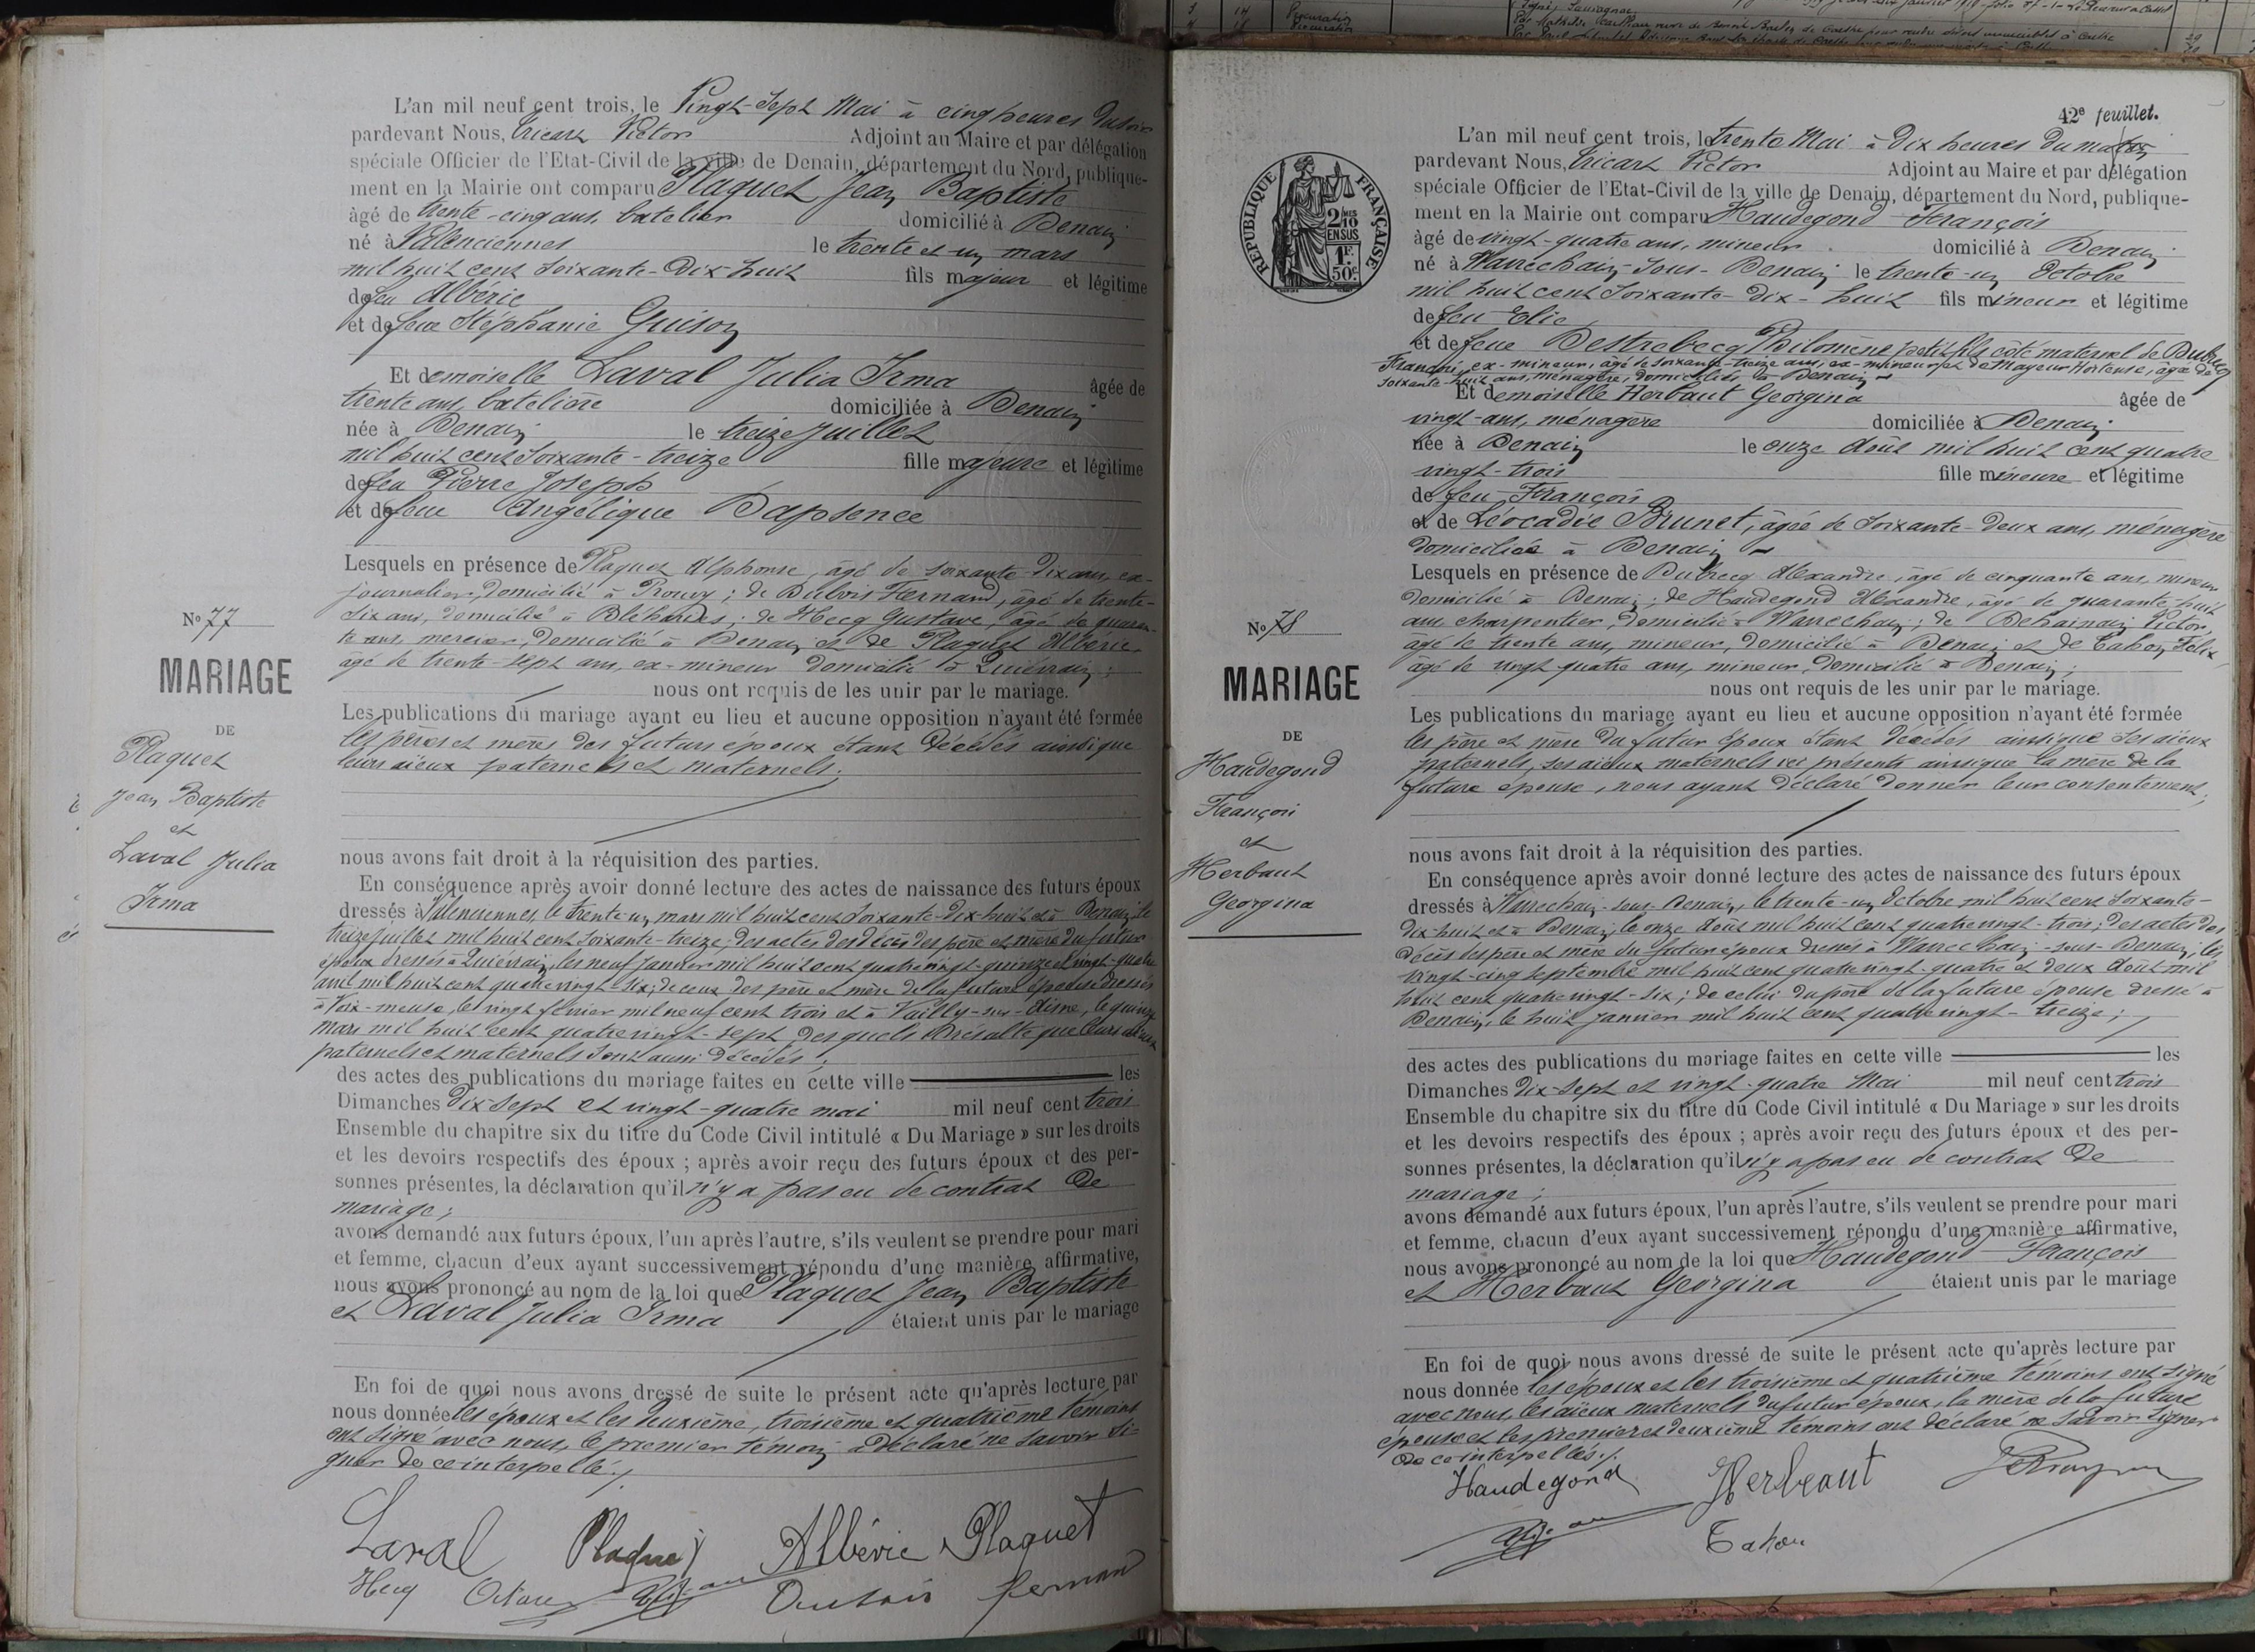 L'an mil neuf cent trois, le Vingt-Sept Mai à cinq heures du soir
pardevant Nous, Tricart Victor Adjoint au Maire et par délégation
spéciale Officier de l'Etat-Civil de la ville de Denain, département du Nord, publique-
ment en la Mairie ont comparu Plaquet Jean Baptiste
âgé de trente-cinq ans, batelier domicilié à Denain
né à Valenciennes le trente et un mars
mil huit cent soixante-dix-huit fils majeur et légitime
de feu Albéric
et de feue Stéphanie Guison
Et demoiselle Laval Julia Irma âgée de
trente ans, batelière domiciliée à Denain
née à Denain le treize juillet
mil huit cent soixante-treize fille majeure et légitime
de feu Pierre Joseph
et de feue Angélique Dapsence
Lesquels en présence de Plaquet Alphonse, âgé de soixante-dix ans, ex-
journalier, domicilié à Prouvy; de Dubois Fernand, âgé de trente-
six ans, domicilié à Bléharies; de Hecq Gustave, âgé de quaran-
te ans, mercier, domicilié à Denain et de Plaquet Albéric,
âgé de trente-sept ans, ex-mineur domicilié à Quiévrain;
nous ont requis de les unir par le mariage.
Les publications du mariage ayant eu lieu et aucune opposition n'ayant été formée
les pères et mères des futurs époux étant décédés ainsi que
leurs aïeux paternels et maternels;
nous avons fait droit à la réquisition des parties.
En conséquence après avoir donné lecture des actes de naissance des futurs époux
dressés à Valenciennes, le trente-un mars mil huit cent soixante-dix-huit et à Denain, le
treize juillet mil huit cent soixante-treize; des actes des décès des père et mère du futur
époux dressés à Quiévrain, les neuf janvier mil huit cent quatre vingt-quinze et vingt-quatre
août mil huit cent quatre vingt-six; de ceux des père et mère de la future épouse dressés
à Void-meuse, le vingt février mil neuf cent trois et à Vailly-sur-Aisne, le quinze
mars mil huit cent quatre vingt-sept, desquels il résulte que leurs aïeux
paternels et maternels sont aussi décédés;
des actes des publications du mariage faites en cette ville les
Dimanches dix-sept et vingt-quatre mai mil neuf cent trois
Ensemble du chapitre six du titre du Code Civil intitulé « Du Mariage » sur les droits
et les devoirs respectifs des époux ; après avoir reçu des futurs époux et des per-
sonnes présentes, la déclaration qu'il n'y a pas eu de contrat de
mariage;
avons demandé aux futurs époux, l'un après l'autre, s'ils veulent se prendre pour mari
et femme, chacun d'eux ayant successivement répondu d'une manière affirmative,
nous avons prononcé au nom de la loi que Plaquet Jean Baptiste
et Laval Julia Irma étaient unis par le mariage
En foi de quoi nous avons dressé de suite le présent acte qu'après lecture par
nous donnée les époux et les deuxième, troisième et quatrième témoins
ont signé avec nous, le premier témoin a déclaré ne savoir si-
gner de ce interpellé./.
Laval Plaquet Albéric Plaquet
Hecq Dubois fernand
No 77
MARIAGE
DE
Plaquet
Jean Baptiste
et
Laval Julia
Irma
42e feuillet.
REPUBLIQUE FRANÇAISE
2/10 EN SUS
1F. 50c
L'an mil neuf cent trois, le trente Mai à Dix heures du matin
pardevant Nous, Tricart Victor Adjoint au Maire et par délégation
spéciale Officier de l'Etat-Civil de la ville de Denain, département du Nord, publique-
ment en la Mairie ont comparu Haudegond François
âgé de vingt-quatre ans, mineur domicilié à Denain
né à Wavrechain-sous-Denain le trente-un Octobre
mil huit cent soixante-dix-huit fils mineur et légitime
de feu Elie
et de feue Destrebecq Philomène petit-fils côté maternel de Dubrecq
François, ex-mineur, âgé de soixante-treize ans, ex-mineur et de Mayeur Hortense, âgée de
soixante-huit ans, ménagère, domiciliés à Denain
Et demoiselle Herbaut Georgina âgée de
vingt-ans, ménagère domiciliée à Denain
née à Denain le onze Août mil huit cent quatre
vingt-trois fille mineure et légitime
de feu François
et de Léocadie Brunet, âgée de soixante-deux ans, ménagère
domiciliée à Denain
Lesquels en présence de Dubrecq Alexandre, âgé de cinquante ans, mineur
domicilié à Denain; de Haudegond Alexandre, âgé de quarante-huit
ans, charpentier, domicilié à Wavrechain; de Dehainain Victor,
âgé de trente ans, mineur, domicilié à Denain et de Cahon Félix,
âgé de vingt quatre ans, mineur, domicilié à Denain;
nous ont requis de les unir par le mariage.
Les publications du mariage ayant eu lieu et aucune opposition n'ayant été formée
les père et mère du futur époux étant décédés ainsi que ses aïeux
paternels, ses aïeux maternels ici présents ainsi que la mère de la
future épouse, nous ayant déclaré donner leur consentement;
nous avons fait droit à la réquisition des parties.
En conséquence après avoir donné lecture des actes de naissance des futurs époux
dressés à Wavrechain-sous-Denain, le trente-un Octobre mil huit cent soixante-
dix-huit et à Denain, le onze Août mil huit cent quatre vingt-trois; des actes des
décès des père et mère du futur époux dressés à Wavrechain-sous-Denain, les
vingt-cinq septembre mil huit cent quatre vingt-quatre et deux Août mil
huit cent quatre vingt-six; de celui du père de la future épouse dressé à
Denain, le huit janvier mil huit cent quatre vingt-treize;
des actes des publications du mariage faites en cette ville les
Dimanches dix-sept et vingt-quatre Mai mil neuf cent trois
Ensemble du chapitre six du titre du Code Civil intitulé « Du Mariage » sur les droits
et les devoirs respectifs des époux ; après avoir reçu des futurs époux et des per-
sonnes présentes, la déclaration qu'il n'y a pas eu de contrat de
mariage;
avons demandé aux futurs époux, l'un après l'autre, s'ils veulent se prendre pour mari
et femme, chacun d'eux ayant successivement répondu d'une manière affirmative,
nous avons prononcé au nom de la loi que Haudegond François
et Herbaut Georgina étaient unis par le mariage
En foi de quoi nous avons dressé de suite le présent acte qu'après lecture par
nous donnée les époux et les troisième et quatrième témoins ont signé
avec nous, les aïeux maternels du futur époux, la mère de la future
épouse et les premier et deuxième témoins ont déclaré ne savoir signer
de ce interpellés./.
Haudegond Herbeaut
Cahon
No 78
MARIAGE
DE
Haudegond
François
et
Herbaut
Georgina